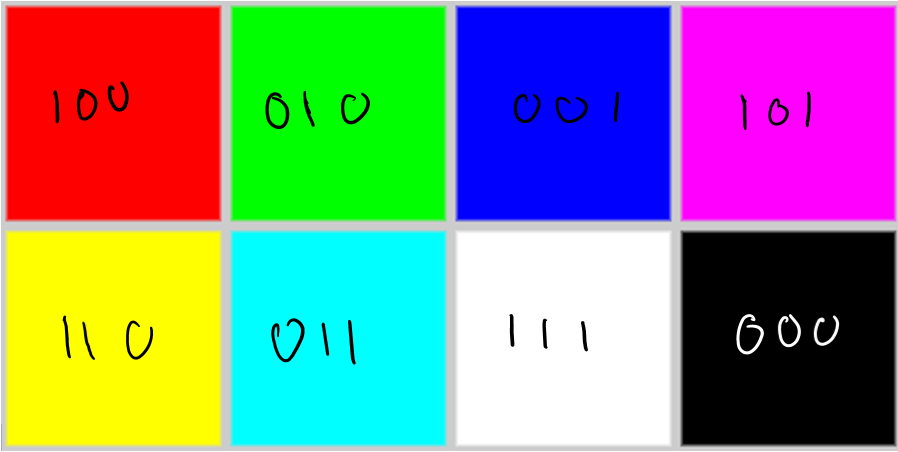 100 010 001 101
110 011 111 000